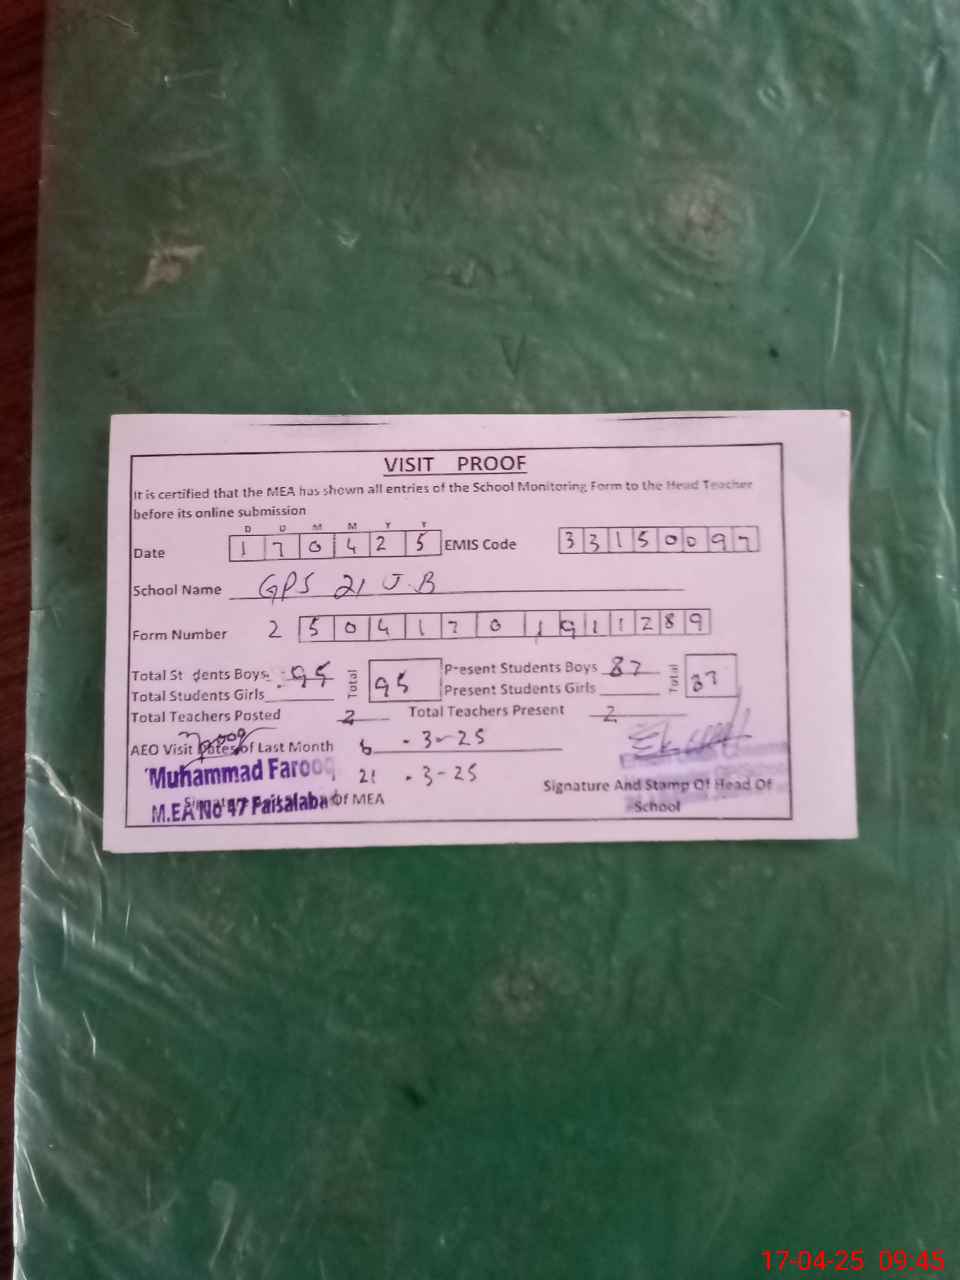 VISIT PROOF
It is certified that the MEA has shown all entries of the School Monitoring Form to the Head Teacher
before its online submission
D D M M Y Y
Date 1 7 0 4 2 5 EMIS Code 3 3 1 5 0 0 9 7
School Name GPS 21 J.B
Form Number 2 5 0 4 1 7 0 1 9 1 1 2 8 9
Total St dents Boys 95 Total 95 Present Students Boys 87 Total 87
Total Students Girls Present Students Girls
Total Teachers Posted 2 Total Teachers Present 2
AEO Visit Dates of Last Month 6 - 3-25
Muhammad Farooq 21 - 3-25
Signature And Stamp Of Head Of
School
M.EA No 47 Faisalabad Of MEA
17-04-25 09:45